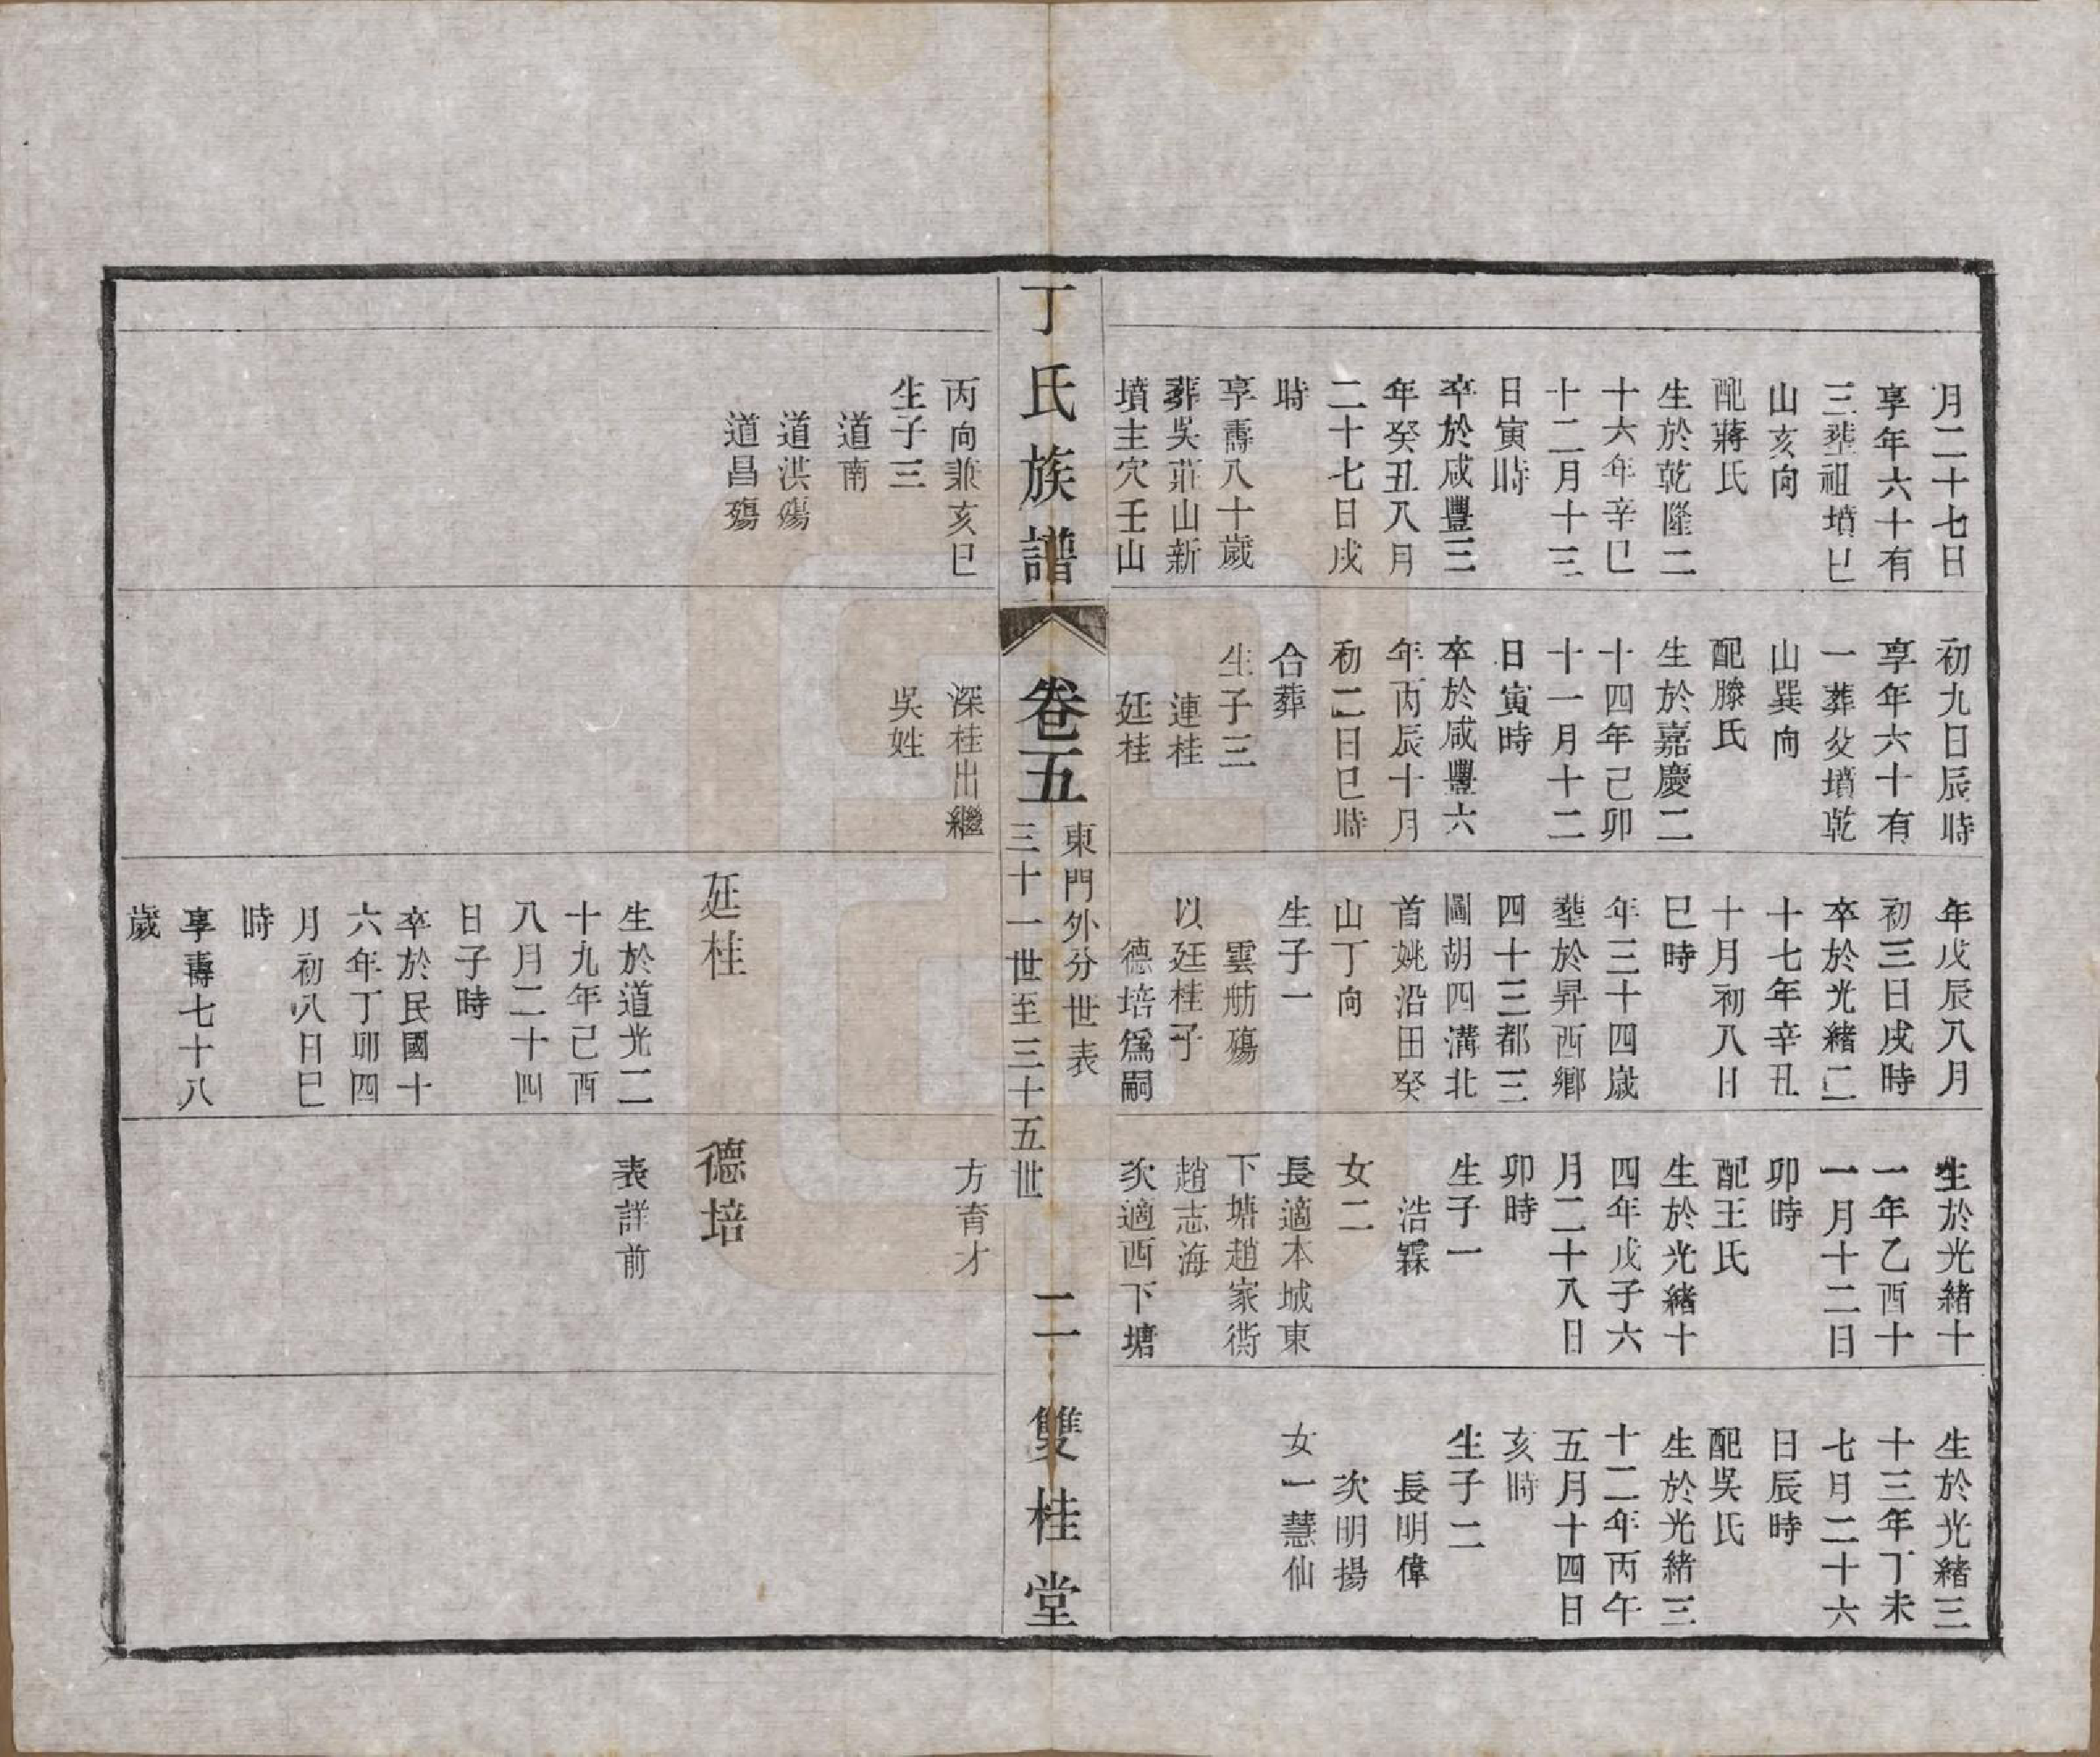 月二十七日
享年六十有
三塟祖墳巳
山亥向
配蔣氏
生於乾隆二
十六年辛巳
十二月十三
日寅時
卒於咸豐三
年癸丑八月
二十七日戌
時
享壽八十歲
葬吳莊山新
墳主穴壬山
初九日辰時
享年六十有
一葬父墳乾
山巽向
配滕氏
生於嘉慶二
十四年己卯
十一月十二
日寅時
卒於咸豐六
年丙辰十月
初二日巳時
合葬
生子三
連桂
延桂
年戊辰八月
初三日戌時
卒於光緒二
十七年辛丑
十月初八日
巳時
年三十四歲
塟於昇西鄉
四十三都三
圖胡四溝北
首姚沿田癸
山丁向
生子一
雲舫殤
以廷桂子
德培爲嗣
生於光緒十
一年乙酉十
一月十二日
卯時
配王氏
生於光緒十
四年戊子六
月二十八日
卯時
生子一
浩霖
女二
長適本城東
下塘趙家衖
趙志海
次適西下塘
生於光緒三
十三年丁未
七月二十六
日辰時
配吳氏
生於光緒三
十二年丙午
五月十四日
亥時
生子二
長明偉
次明揚
女一慧仙
丁氏族譜
卷五
東門外分世表
三十一世至三十五世
二
雙桂堂
丙向兼亥巳
生子三
道南
道洪殤
道昌殤
深桂出繼
吳姓
延桂
生於道光二
十九年己酉
八月二十四
日子時
卒於民國十
六年丁卯四
月初八日巳
時
享壽七十八
歲
方育才
德培
表詳前